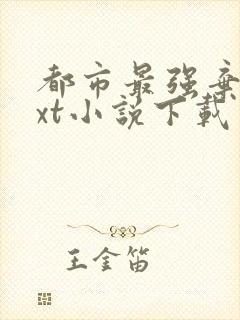 都市最强弃
xt小说下载
王金笛